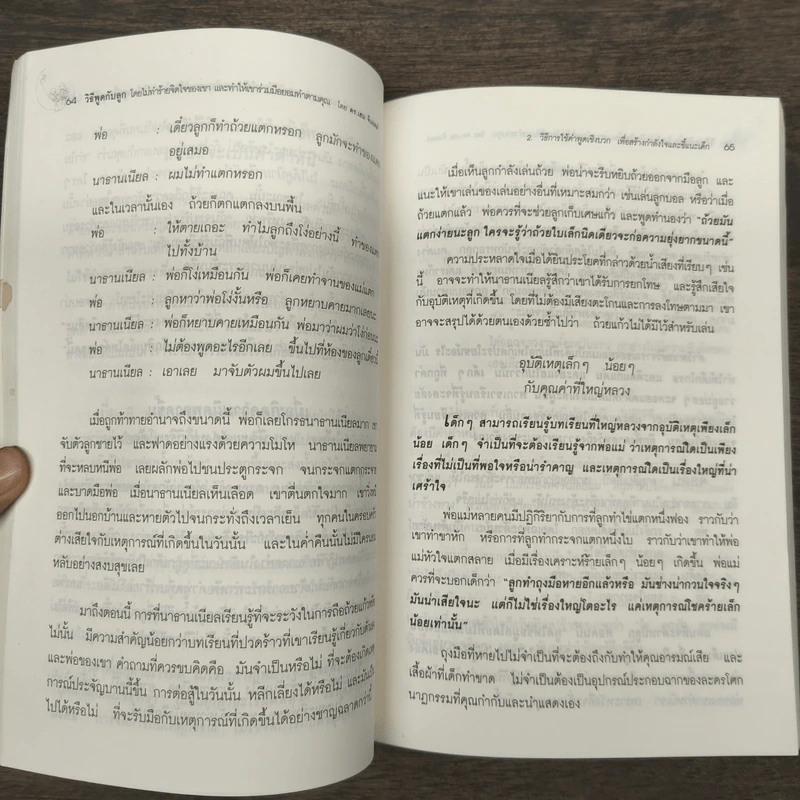 64 วิธีพูดกับลูก โดยไม่ทำร้ายจิตใจของเขา และทำให้เขาร่วมมือยอมทำตามคุณ โดย ดร.เฮม
พ่อ : เดี๋ยวลูกก็ทำถ้วยแตกหรอก ลูกมักจะทำของแตก
อยู่เสมอ
นาธานเนียล : ผมไม่ทำแตกหรอก
และในเวลานั้นเอง ถ้วยก็ตกแตกลงบนพื้น
พ่อ : ให้ตายเถอะ ทำไมลูกถึงโง่อย่างนี้ ทำของแตก
ไปทั้งบ้าน
นาธานเนียล : พ่อก็โง่เหมือนกัน พ่อก็เคยทำจานของแม่แตก
พ่อ : ลูกหาว่าพ่อโง่งั้นหรือ ลูกหยาบคายมากเลยนะ
นาธานเนียล : พ่อก็หยาบคายเหมือนกัน พ่อมาว่าผมว่าโง่ก่อนนี่
พ่อ : ไม่ต้องพูดอะไรอีกเลย ขึ้นไปที่ห้องของลูกเดี๋ยวนี้
นาธานเนียล : เอาเลย มาจับตัวผมขึ้นไปเลย
เมื่อถูกท้าทายอำนาจถึงขนาดนี้ พ่อก็เลยโกรธนาธานเนียลมาก เขา
จับตัวลูกชายไว้ และฟาดอย่างแรงด้วยความโมโห นาธานเนียลพยายาม
ที่จะหลบหนีพ่อ เลยผลักพ่อไปชนประตูกระจก จนกระจกแตกกระจาย
และบาดมือพ่อ เมื่อนาธานเนียลเห็นเลือด เขาตื่นตกใจมาก เขาวิ่งหนี
ออกไปนอกบ้านและหายตัวไปจนกระทั่งถึงเวลาเย็น ทุกคนในครอบครัว
ต่างเสียใจกับเหตุการณ์ที่เกิดขึ้นในวันนั้น และในค่ำคืนนั้นไม่มีใครนอน
หลับอย่างสงบสุขเลย
มาถึงตอนนี้ การที่นาธานเนียลเรียนรู้ที่จะระวังในการถือถ้วยแก้วหรือ
ไม่นั้น มีความสำคัญน้อยกว่าบทเรียนที่ปวดร้าวที่เขาเรียนรู้เกี่ยวกับตัวเขา
และพ่อของเขา คำถามที่ควรขบคิดคือ มันจำเป็นหรือไม่ ที่จะต้องเกิดเหตุ
การณ์ประจัญบานนี้ขึ้น การต่อสู้ในวันนั้น หลีกเลี่ยงได้หรือไม่ และมันเป็น
ไปได้หรือไม่ ที่จะรับมือกับเหตุการณ์ที่เกิดขึ้นได้อย่างชาญฉลาดกว่านี้
2. วิธีการใช้คำพูดเชิงบวก เพื่อสร้างกำลังใจและชี้แนะเด็ก 65
เมื่อเห็นลูกกำลังเล่นถ้วย พ่อน่าจะรีบหยิบถ้วยออกจากมือลูก และ
แนะให้เขาเล่นของเล่นอย่างอื่นที่เหมาะสมกว่า เช่นเล่นลูกบอล หรือว่าเมื่อ
ถ้วยแตกแล้ว พ่อควรที่จะช่วยลูกเก็บเศษแก้ว และพูดทำนองว่า “ถ้วยมัน
แตกง่ายนะลูก ใครจะรู้ว่าถ้วยใบเล็กนิดเดียวจะก่อความยุ่งยากขนาดนี้”
ความประหลาดใจเมื่อได้ยินประโยคที่กล่าวด้วยน้ำเสียงที่เรียบๆ เช่น
นี้ อาจจะทำให้นาธานเนียลรู้สึกว่าเขาได้รับการยกโทษ และรู้สึกเสียใจ
กับอุบัติเหตุที่เกิดขึ้น โดยที่ไม่ต้องมีเสียงตะโกนและการลงโทษตามมา เขา
อาจจะสรุปได้ด้วยตนเองด้วยซ้ำไปว่า ถ้วยแก้วไม่ได้มีไว้สำหรับเล่น
อุบัติเหตุเล็กๆ น้อยๆ
กับคุณค่าที่ใหญ่หลวง
เด็กๆ สามารถเรียนรู้บทเรียนที่ใหญ่หลวงจากอุบัติเหตุเพียงเล็ก
น้อย เด็กๆ จำเป็นที่จะต้องเรียนรู้จากพ่อแม่ ว่าเหตุการณ์ใดเป็นเพียง
เรื่องที่ไม่เป็นที่พอใจหรือน่ารำคาญ และเหตุการณ์ใดเป็นเรื่องใหญ่ที่น่า
เศร้าใจ
พ่อแม่หลายคนมีปฏิกิริยากับการที่ลูกทำไข่แตกหนึ่งฟอง ราวกับว่า
เขาทำขาหัก หรือการที่ลูกทำกระจกแตกหนึ่งใบ ราวกับว่าเขาทำให้พ่อ
แม่หัวใจแตกสลาย เมื่อมีเรื่องเคราะห์ร้ายเล็กๆ น้อยๆ เกิดขึ้น พ่อแม่
ควรที่จะบอกเด็กว่า “ลูกทำถุงมือหายอีกแล้วหรือ มันช่างน่ากวนใจจริงๆ
มันน่าเสียใจนะ แต่ก็ไม่ใช่เรื่องใหญ่โตอะไร แค่เหตุการณ์โชคร้ายเล็ก
น้อยเท่านั้น”
ถุงมือที่หายไปไม่จำเป็นที่จะต้องถึงกับทำให้คุณอารมณ์เสีย และ
เสื้อผ้าที่เด็กทำขาด ไม่จำเป็นต้องเป็นอุปกรณ์ประกอบฉากของละครโศก
นาฏกรรมที่คุณกำกับและนำแสดงเอง